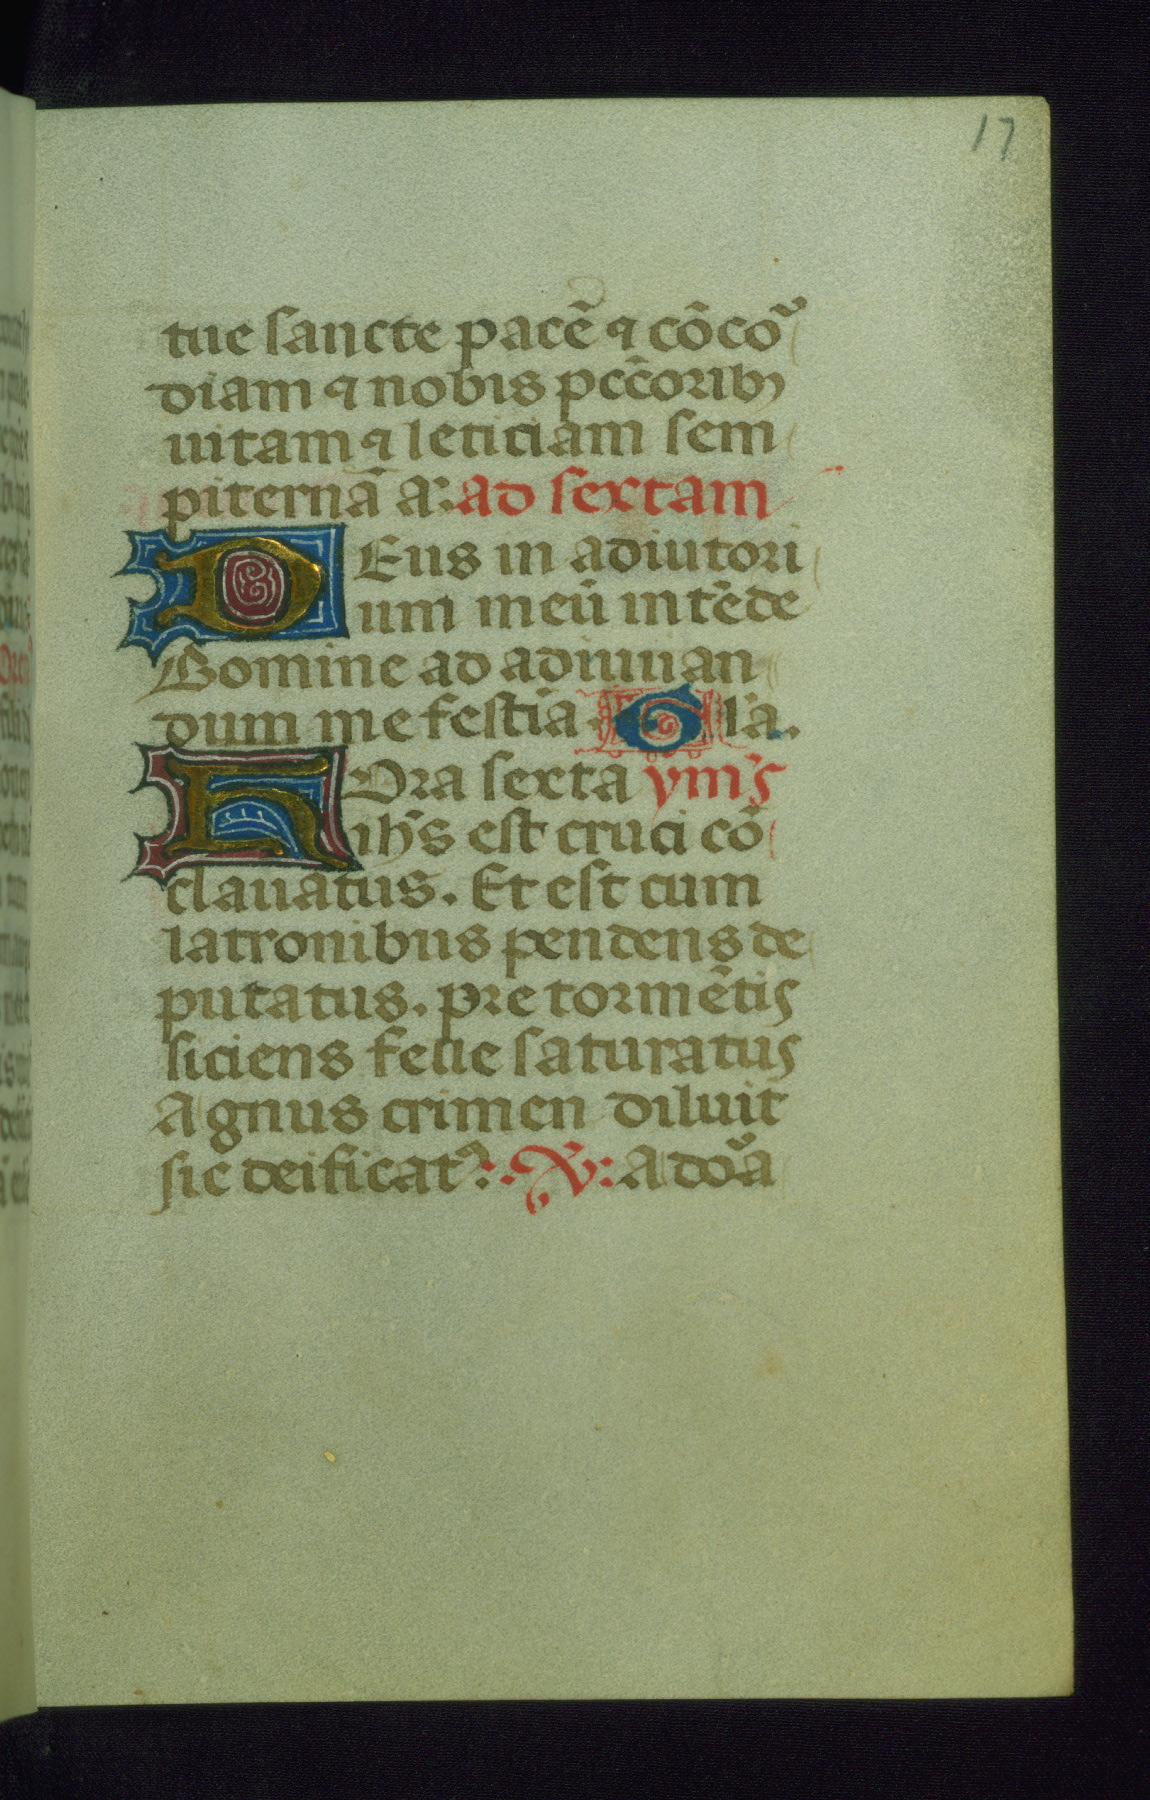 17
tue sancte pacē ⁊ cōcoꝛ̃
diam ⁊ nobis pcc̄orib₉
uitam ⁊ leticiam sem
piternā a: ad sextam
DEus in adiutori
um meū intēde
Domine ad adiuuan
dum me festīa. Gl'a.
HOra sexta ym̄s
ih̄s est cruci cō
clauatus. Et est cum
latronibus pendens de
putatus. pre tormētis
siciens felle saturatus
Agnus crimen diluit
sic deificat᷒: ꝟ: Adoꝛ̃a